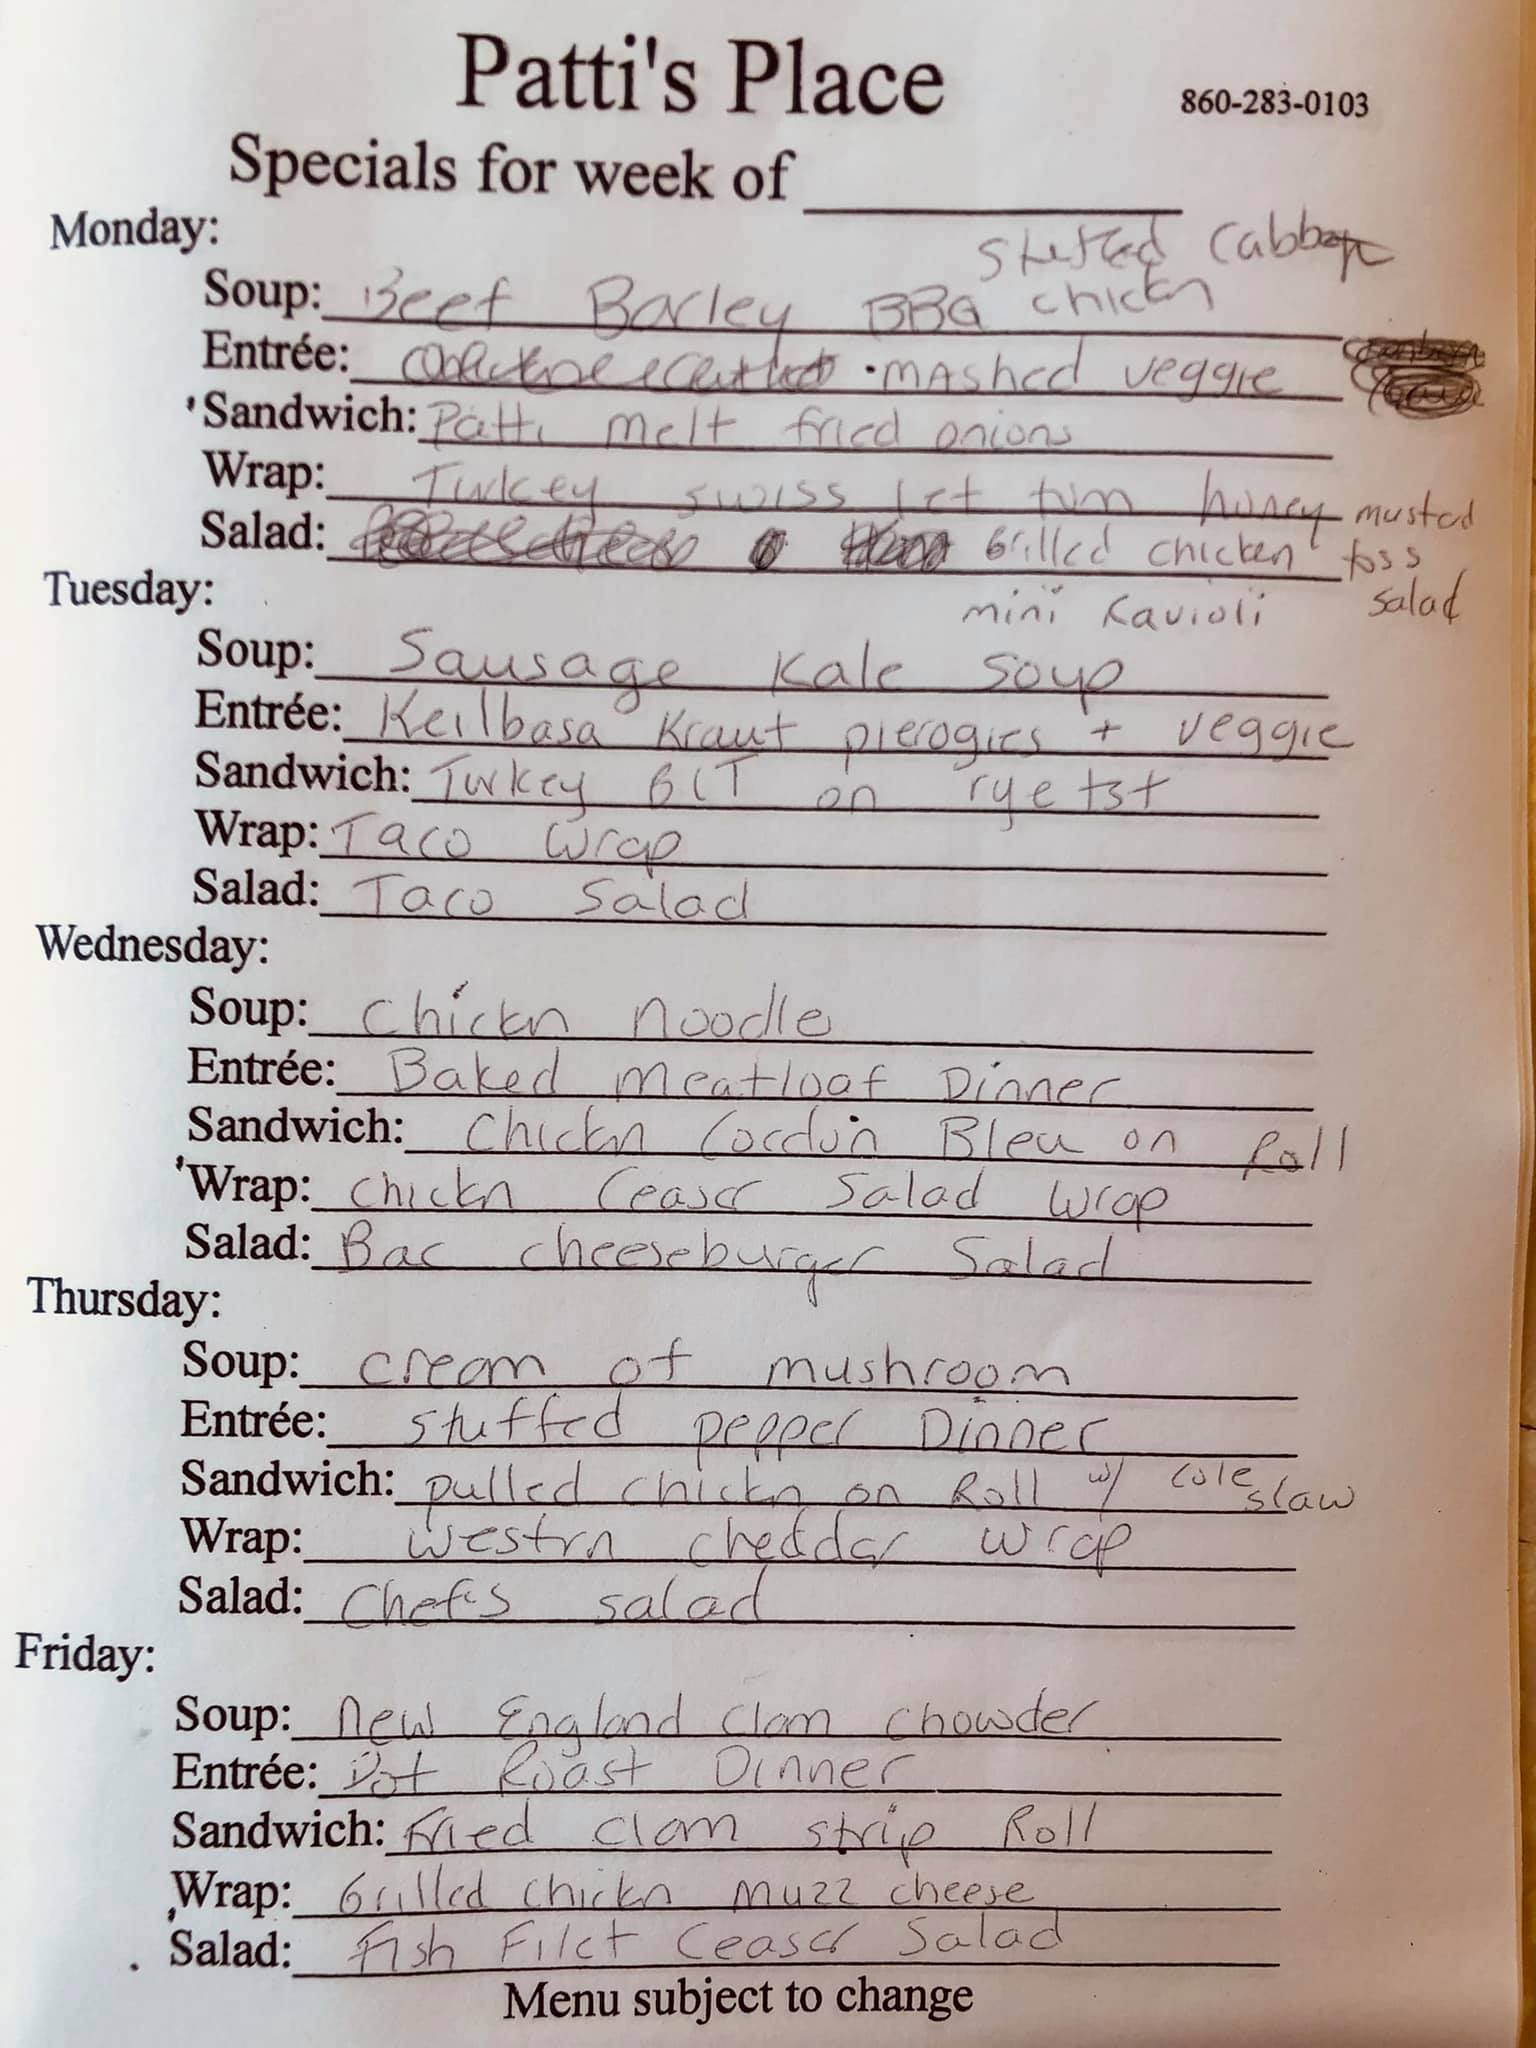 Patti's Place
860-283-0103
Specials for week of
Monday:
stuffed Cabbage
Soup: Beef Barley BBQ chickn
Entrée: mashed veggie
Sandwich: Patti melt fried onions
Wrap: Turkey swiss let tom honey mustad
Salad: Grilled chicken toss
salad
Tuesday:
mini Ravioli
Soup: Sausage Kale Soup
Entrée: Keilbasa Kraut pierogies + veggie
Sandwich: Turkey BLT on rye tst
Wrap: Taco Wrap
Salad: Taco Salad
Wednesday:
Soup: Chickn noodle
Entrée: Baked meatloaf Dinner
Sandwich: Chickn Cordon Bleu on Roll
Wrap: Chickn Ceaser Salad Wrap
Salad: Bac cheeseburger Salad
Thursday:
Soup: cream of mushroom
Entrée: stuffed pepper Dinner
Sandwich: pulled chickn on Roll w/ cole slaw
Wrap: westrn cheddar wrap
Salad: Chef's salad
Friday:
Soup: New England Clam Chowder
Entrée: Pot Roast Dinner
Sandwich: Fried clam strip Roll
Wrap: Grilled chickn muzz cheese
Salad: Fish Filet Ceaser Salad
Menu subject to change